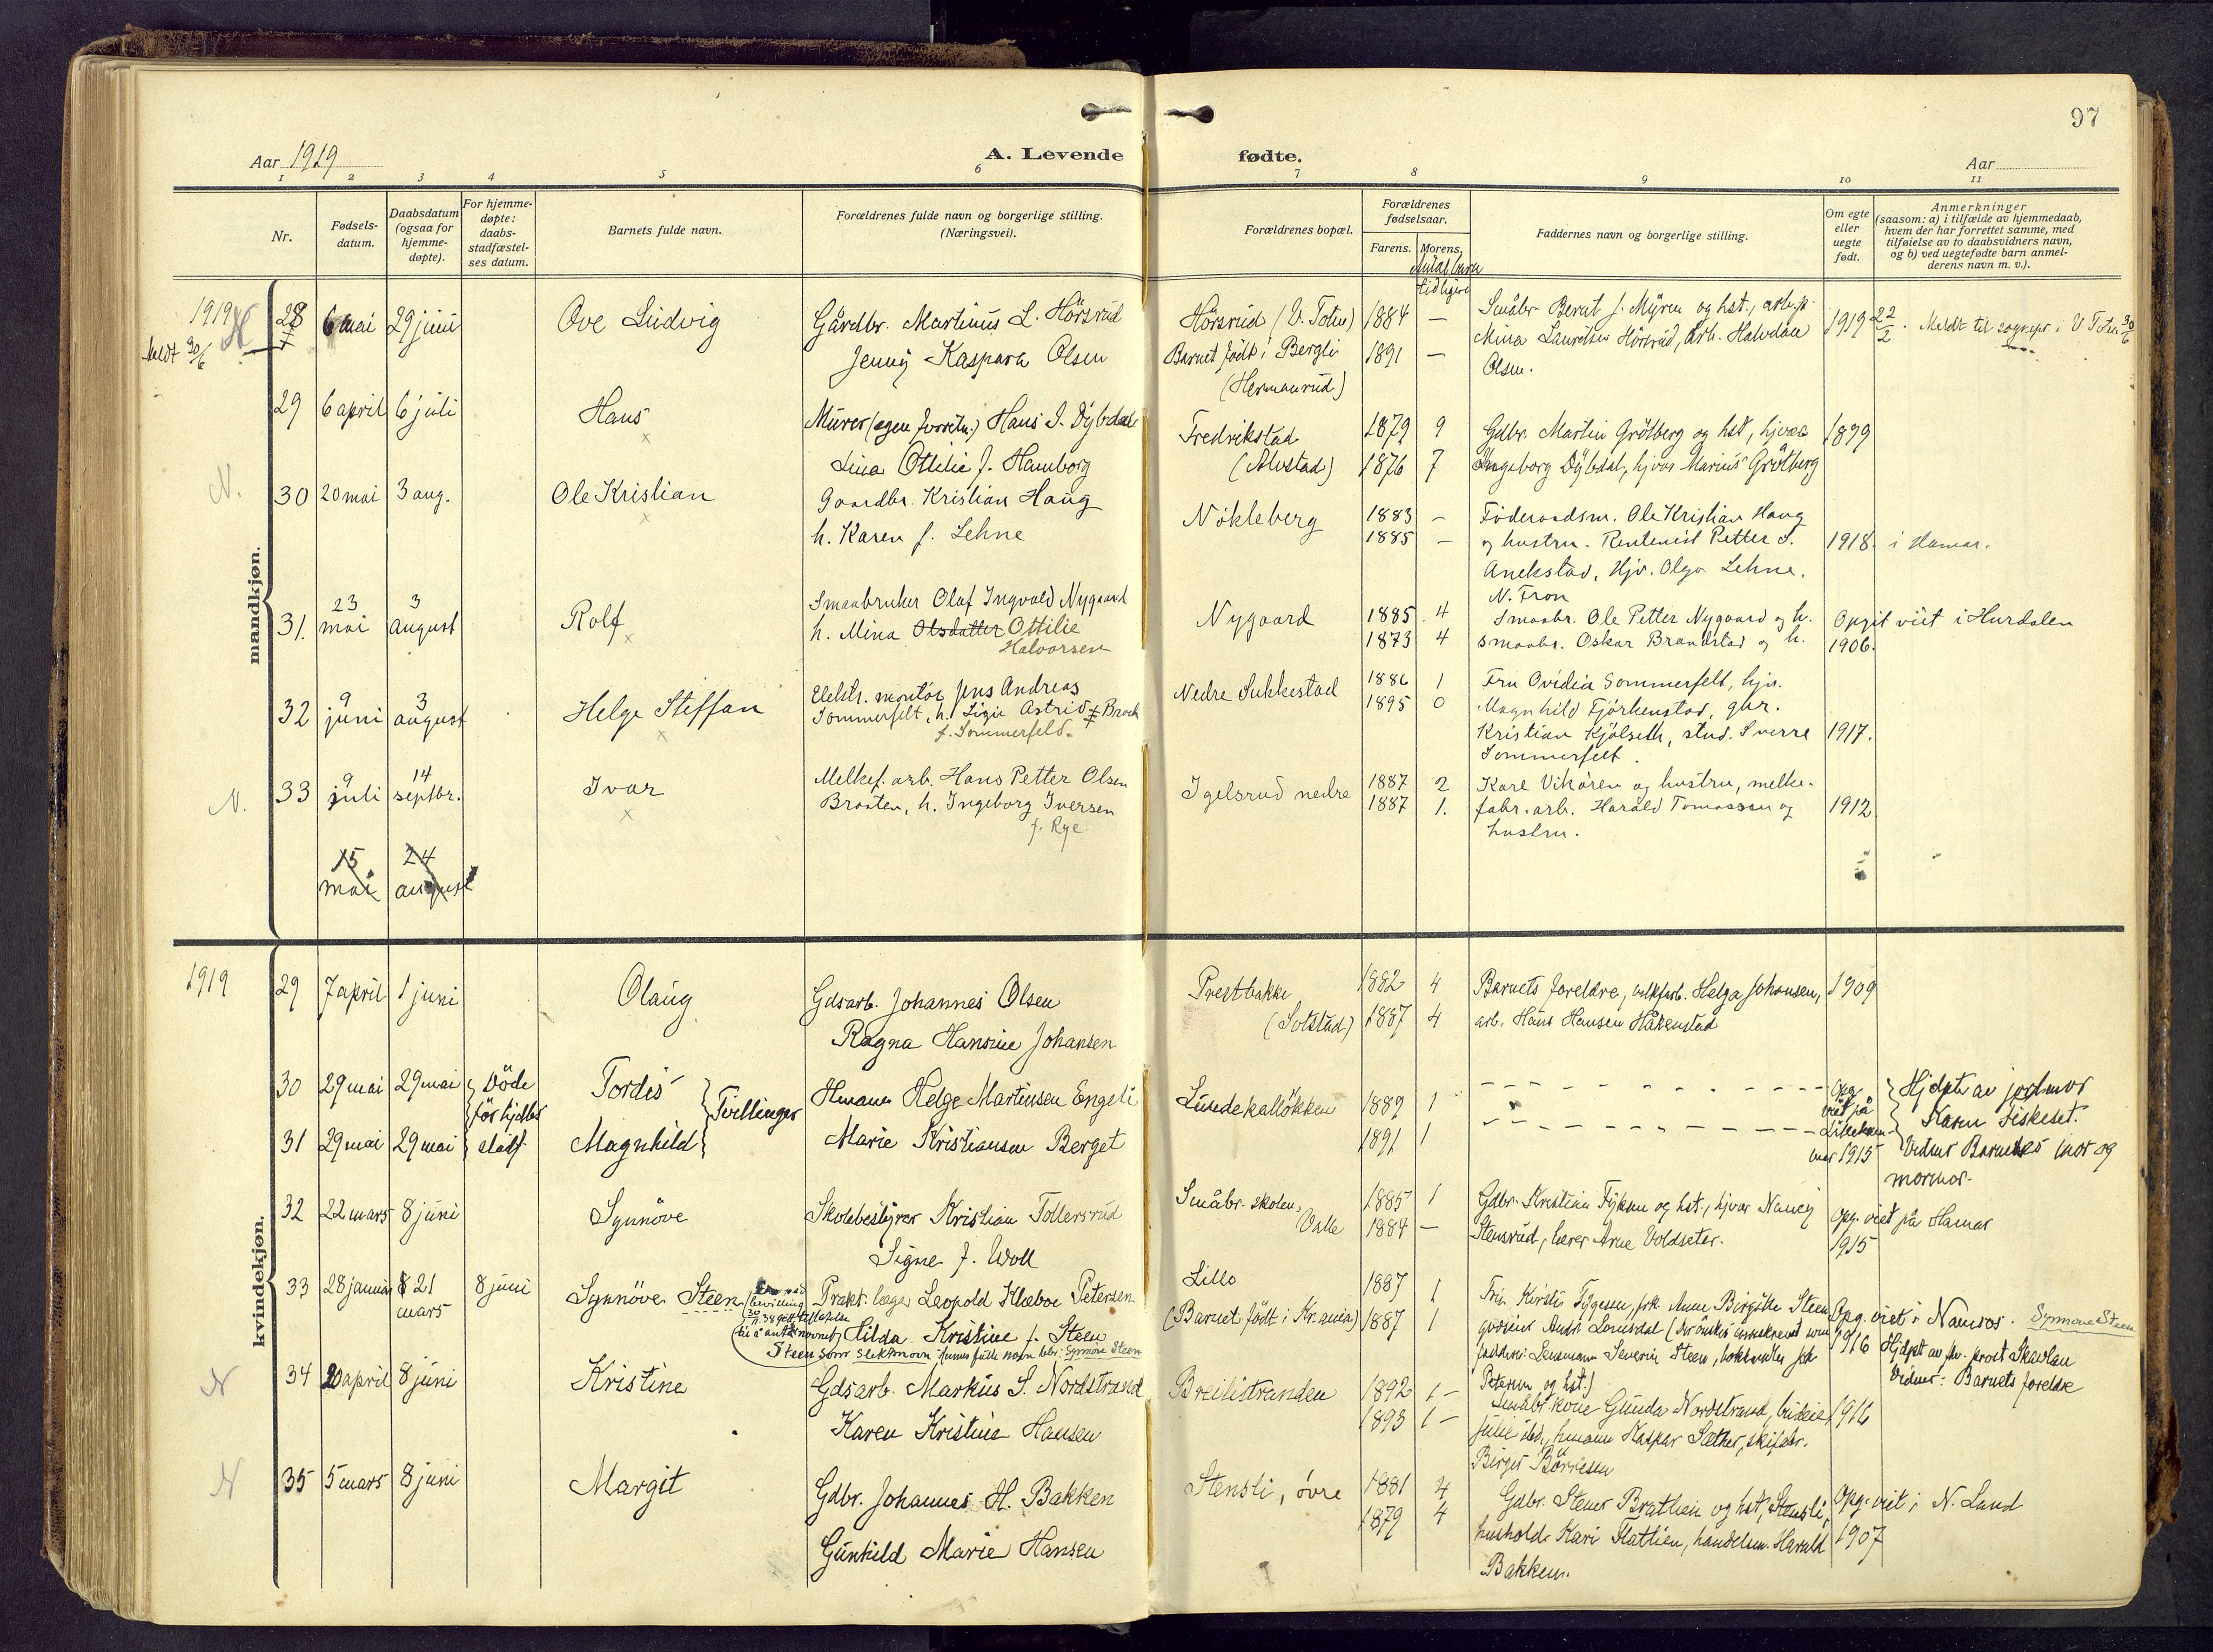 97
Aar 1919
A. Levende fødte.
Aar
1 2 3 4 5 6 7 8 9 10 11
Nr.
Fødsels-
datum.
Daabsdatum
(ogsaa for
hjemme-
døpte).
For hjemme-
døpte:
daabs-
stadfæstel-
ses datum.
Barnets fulde navn.
Forældrenes fulde navn og borgerlige stilling.
(Næringsvei).
Forældrenes bopæl.
Forældrenes
fødselsaar.
Farens. Morens.
Faddernes navn og borgerlige stilling.
Om egte
eller
uegte
født.
Anmerkninger
(saasom: a) i tilfælde av hjemmedaab,
hvem der har forrettet samme, med
tilføielse av to daabsvidners navn,
og b) ved uegtefødte barn anmel-
derens navn m. v.).
Antal barn
tidligere
mandkjøn.
1919
Meldt 30/6
28 6 mai 29 juni Ove Ludvig
Gårdbr. Martinus L. Hörsrud
Jenny Kaspara Olsen
Hörsrud (V. Toten)
Barnet født i Bergli
(Hermanrud)
1884 —
1891 —
Småbr. Bernt f. Myren og hst., arb.p.
Mina Lauritsen Hörsrud, Arb. Halvdan
Olsen.
1919 22/2. Meldt til sognepr. i V. Toten 30/6
29 6 april 6 juli Hans
Murer (egen forretn.) Hans J. Dybdal
Lina Ottilie f. Hamborg
Fredrikstad
(Alvstad)
1879 9
1876 7
Gdbr. Martin Gråtberg og hst, hjvær
Ingeborg Dybdal, hjvær Marius Gråtberg
1899
N.
30 20 mai 3 aug. Ole Kristian
Gaardbr. Kristian Haug
h. Karen f. Lehne
Nökleberg
1883 –
1885 –
Föderaadsm. Ole Kristian Haug
og hustru. Rentenist Petter S.
Anekstad, Hjv. Olga Lehne.
N. Fron
1918. i Hamar.
31. 23 mai 3 august Rolf
Smaabruker Olaf Ingvald Nygaard
h. Mina Olsdatter Ottilie
Halvorsen
Nygaard
1885. 4
1873 4
Smaabr. Ole Petter Nygaard og h.
smaabr. Oskar Brandstad og h.
Opgit viet i Hurdalen
1906.
32 9 juni 3 august Helge Steffan
Elektr. montör Jens Andreas
Sommerfelt, h. Ligie Astrid Broch
f. Sommerfeld.
Nedre Sukkestad
1886 1
1895 0
Fru Ovidia Sommerfelt, hjv.
Magnhild Fjörkenstad, gbr.
Kristian Kjölseth, stud. Sverre
Sommerfelt.
1917.
N.
33 9 juli 14 septbr. Ivar
Melkef. arb. Hans Petter Olsen
Braaten, h. Ingeborg Iversen
f. Rye.
Igelsrud nedre
1887 2
1887 1.
Karl Vikören og hustru, melke-
fabr. arb. Harald Tomassen og
hustru.
1912
15 mai 24 august
kvindekjøn.
1919
29 7 april 1 juni Olaug
Gdsarb. Johannes Olsen
Ragna Hansine Johansen
Prestbakke
(Sotstad)
1882 4
1887 4
Barnets foreldre, Helga Johansen,
arb. Hans Hansen Håkenstad
1909
30 29 mai 29 mai Döde Tordis
för hjdbs
31 29 mai 29 mai stadf. Magnhild
Tvillinger
Hmann Helge Martinsen Engeli
Marie Kristiansen Berget
1889 1
1891 1
Opg
viet på
Lilleham-
mer 1915
Hjdpt av jordmor
Karen Fiskeset.
Vidner Barnets mor og
mormor.
32 22 mars 8 juni Synnöve
Skolebestyrer Kristian Tollersrud
Signe f. Woll
Småbr. skolen,
Valle
1885 1
1884 –
Gdbr. Kristian Fyksen og hst., hjvær Nancy
Stensrud, lærer Arne Voldseter.
Opg. viet på Hamar
1915
33 28 januar 21 mars 8 juni Synnöve Steen
Prakt. læge Leopold Klæboe Petersen
Hilda Kristine f. Steen
Steen som slektsnavn. hennes fulle navn blir: Synnöve Steen
Lillo
(Barnet født i Kr.ania)
1887 1
1887 1
Frk. Kirsti Tygesen, frk. Anne Birgitte Steen
Lensmann Severin Steen,
Petersen og hst.)
Opg. viet i Namsos. Synnöve Steen
1916
Hjdpt av prost Skavlan
Vidner: Barnets foreldre
N
34 20 april 8 juni Kristine
Gdsarb. Markus S. Nordstrand
Karen Kristine Hansen
Breilistranden
1892 1 –
1893 1 –
Småbr. kone Gunda Nordstrand,
Julie ibd., hmann Kaspar Sæther, skifabr.
Birger Börresen
1916
N
35 5 mars 8 juni Margit
Gdbr. Johannes H. Bakken
Gunhild Marie Hansen
Stensli, övre
1881 4
1879 4
Gdbr. Stener Brathein og hst, Stensli,
hushold. Kari Flatlien, handelsm. Harald
Bakken.
Opg. viet i N. Land
1907